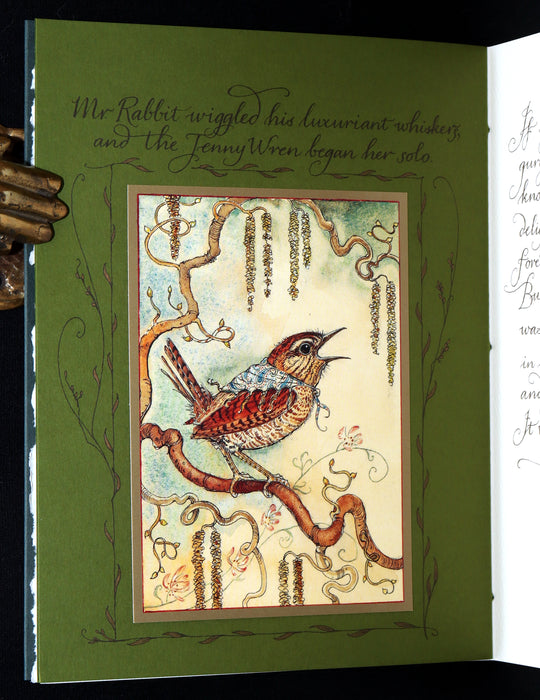 Mr Rabbit wiggled his luxuriant whiskers,
and the Jenny Wren began her solo.
If
kno
deli
fore
Bu
was
in
and
It